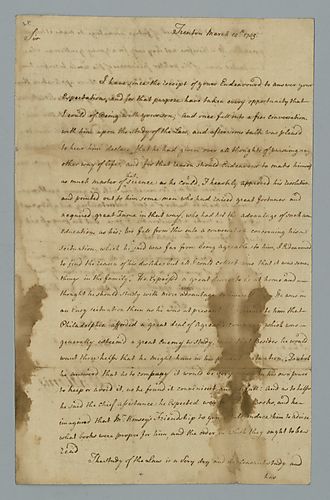 Trenton March 12th 1755
Sir
I have since the receipt of yours Endeavoured to answer your
Expectations, and for that purpose have taken every opportunity that
I could of Being with yourson, and once fell into a free conversation
with him upon the study of the Law, and afterwards was pleased
to hear him declare, that he had given over all thoughts of pursuing any
other way of Life, and for that reason should Endeavour to make himself
as much master of that Science as he could, I heartily approved his resolution
and pointed out to him some men who had raised great fortunes and
acquired great Fame in that way, who had not the advantage of such an
Education as his; We fell from this into a conversation concerning his
Situation, which he said was far from being agreeable to him, I Endeavoured
to find the reason of his dislike but all I could collect was that it was some
things in the family. He Expressed a great desire to be at home and
thought he should study with more advantage He was in
an Easy situation than as he was at present to him that
Philadelphia afforded a great deal of which was
generally esteemed a great Enemy to study, that Besides he would
want those helps that he might have in his present
he answered that as to company it would be in his own power
to keep or avoid it, as he found it convenient And as to helps
he said the Chief assistance he Expected was Books, and he
imagined that Mr Kinsey's Friendship to you introduce him to advise
what books were proper for him and the order in which they ought to be
read
The study of the Law is a very dry and study and